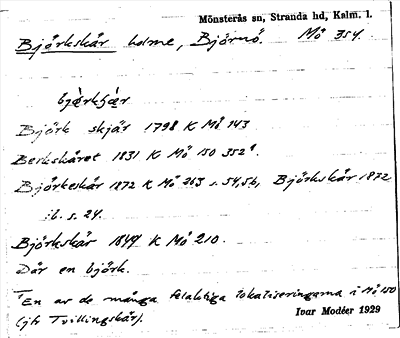 Mönsterås sn, Stranda hd, Kalm. l.
Björkskär holme, Björnö. Mö 354.
bjærkʃær
Björk skjär 1798 K Mö 143
Berkskäret 1831 K Mö 150 352¹.
Björkeskär 1872 K Mö 263 s. 54,56, Björkskär 1872
ib. s. 24.
Björkskär 1844 K Mö 210.
Där en björk.
¹En av de många felaktiga lokaliseringarna i Mö 150
(jfr Tvillingskär).
Ivar Modéer 1929